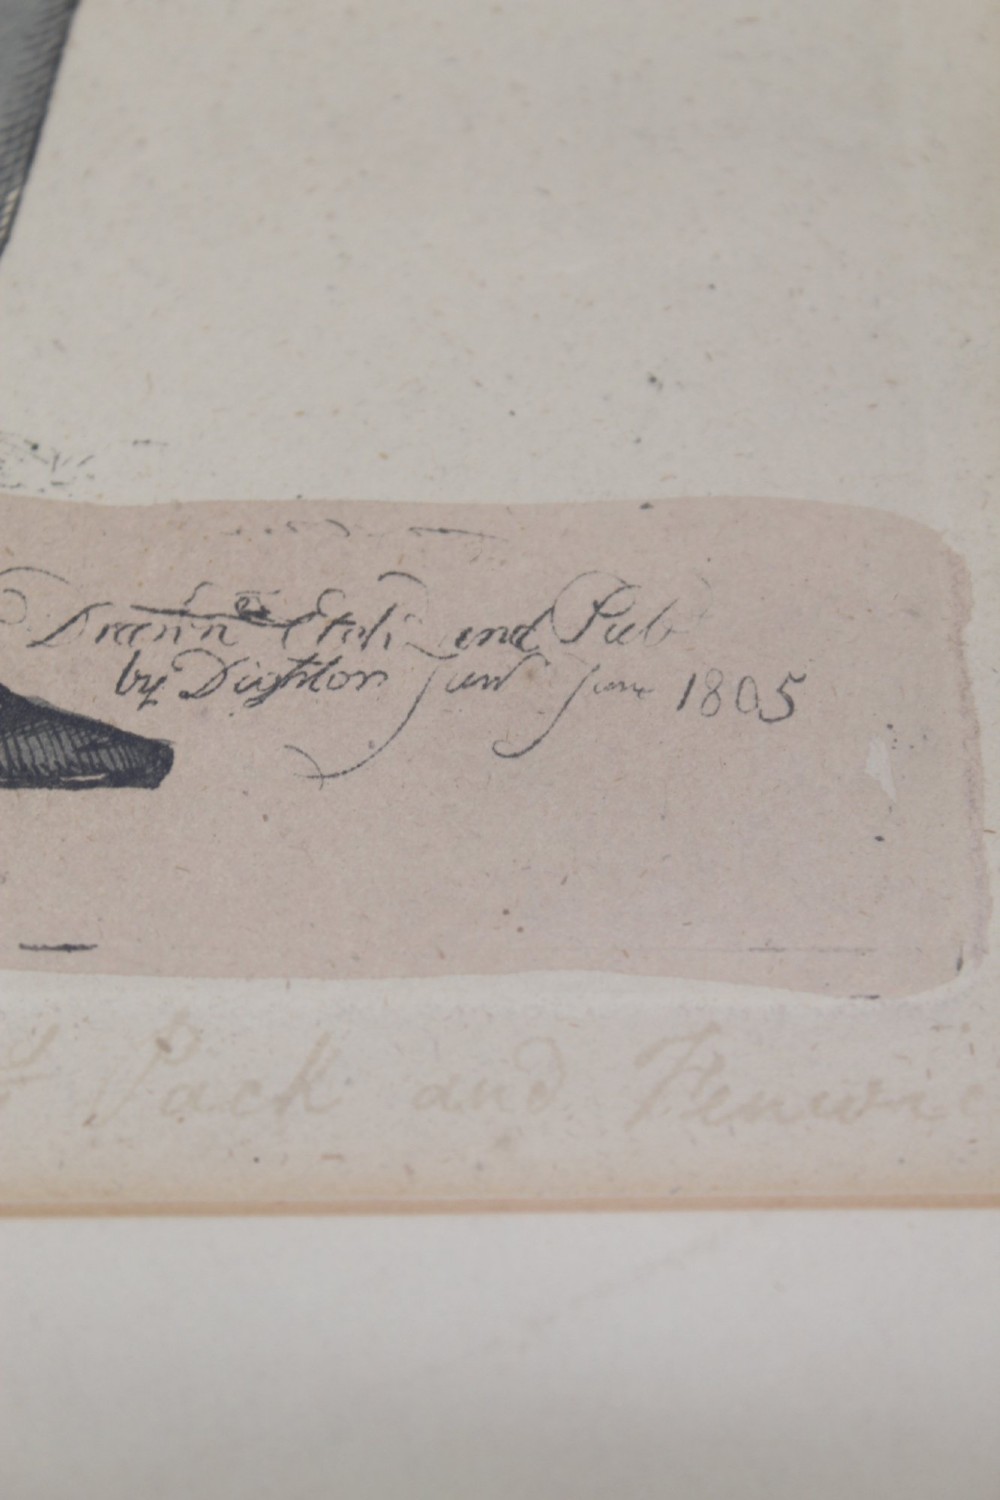 Drawn Etch and Pub
by Dighton Junr June 1805
Pack and Fenwic